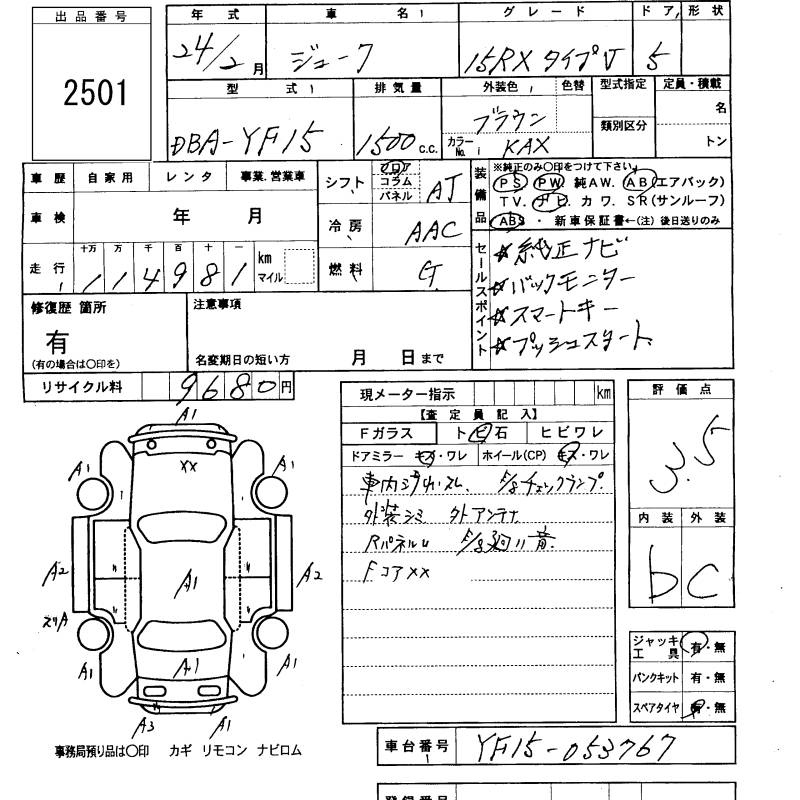 出品番号
2501
年式 車名 グレード ドア 形状
24/2月 ジューク 15RX タイプV 5
型式 排気量 外装色 色替 型式指定 定員・積載
類別区分 名 トン
DBA-YF15 1500 c.c. ブラウン
カラーNo. KAX
車歴 自家用 レンタ 事業.営業車
車検 年 月
走行 十万 万 千 百 十 一 km マイル
114981
シフト フロア コラム パネル AT
冷房 AAC
燃料 G
装備品
※純正のみ〇印をつけて下さい。
PS PW 純AW. AB (エアバック)
TV. ナビ. カワ. SR(サンルーフ)
ABS ・ 新車保証書←(注) 後日送りのみ
セールスポイント
☆純正ナビ
☆バックモニター
☆スマートキー
☆プッシュスタート
修復歴 箇所
有
(有の場合は〇印を)
注意事項
名変期日の短い方 月 日まで
リサイクル料 9680円
現メーター指示 km
【査定員記入】
Fガラス トビ石 ヒビワレ
ドアミラー キズ・ワレ ホイール(CP) キズ・ワレ
車内 スレ. E/gチェックランプ.
外装シミ 外アンテナ
RパネルU E/g廻り音.
Fコア××
評価点
3.5
内装 外装
b C
ジャッキ工具 有・無
パンクキット 有・無
スペアタイヤ 有・無
A1
××
A1 A1
A2 A1 A2
A1 A1 A1
A3 A1
事務局預り品は〇印 カギ リモコン ナビロム
車台番号 YF15-053767